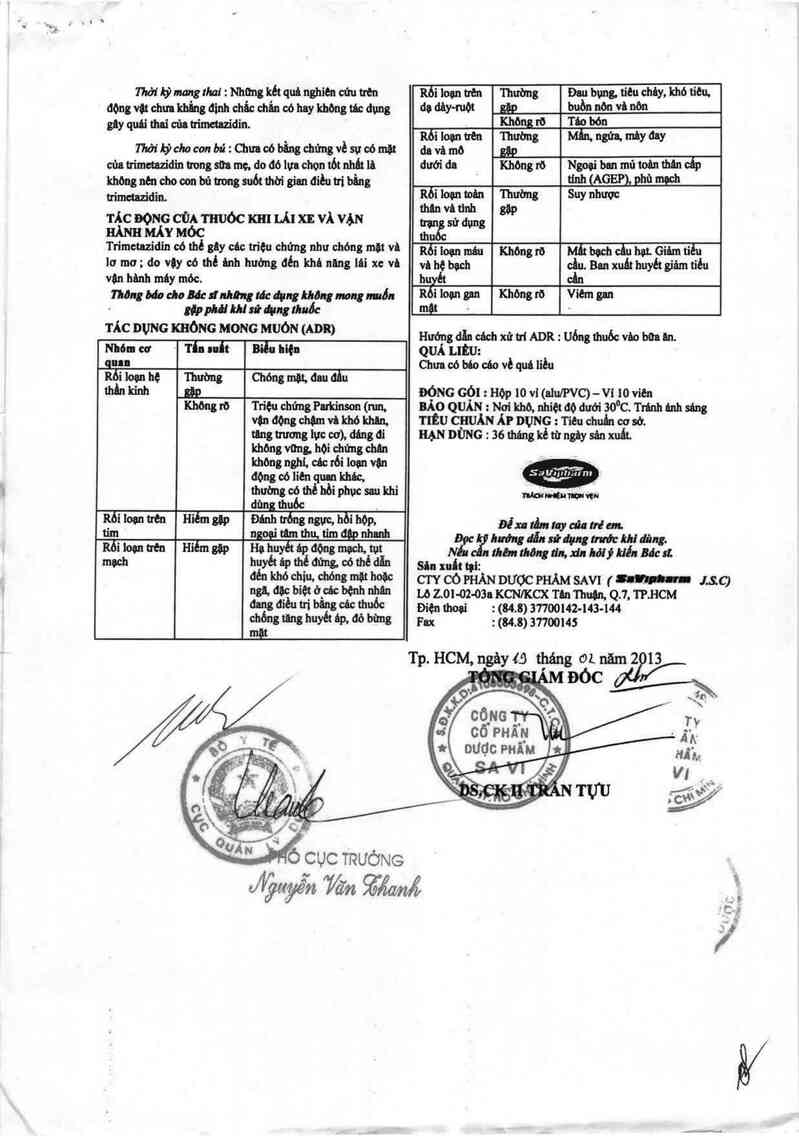 Thời kỳ mang thai : Những kết quả nghiên cứu trên
động vật chưa khẳng định chắc chắn có hay không tác dụng
gây quái thai của trimetazidin.
Thời kỳ cho con bú : Chưa có bằng chứng về sự có mặt
của trimetazidin trong sữa mẹ, do đó lựa chọn tốt nhất là
không nên cho con bú trong suốt thời gian điều trị bằng
trimetazidin.
TÁC ĐỘNG CỦA THUỐC KHI LÁI XE VÀ VẬN
HÀNH MÁY MÓC
Trimetazidin có thể gây các triệu chứng như chóng mặt và
lơ mơ ; do vậy có thể ảnh hưởng đến khả năng lái xe và
vận hành máy móc.
Thông báo cho Bác sĩ những tác dụng không mong muốn
gặp phải khi sử dụng thuốc
TÁC DỤNG KHÔNG MONG MUỐN (ADR)
Nhóm cơ quan
Tần suất
Biểu hiện
Rối loạn hệ
thần kinh
Thường
gặp
Chóng mặt, đau đầu
Không rõ
Triệu chứng Parkinson (run,
vận động chậm và khó khăn,
tăng trương lực cơ), dáng đi
không vững, hội chứng chân
không nghỉ, các rối loạn vận
động có liên quan khác,
thường có thể hồi phục sau khi
dùng thuốc
Rối loạn trên
tim
Hiếm gặp
Đánh trống ngực, hồi hộp,
ngoại tâm thu, tim đập nhanh
Rối loạn trên
mạch
Hiếm gặp
Hạ huyết áp động mạch, tụt
huyết áp thế đứng, có thể dẫn
đến khó chịu, chóng mặt hoặc
ngã, đặc biệt ở các bệnh nhân
đang điều trị bằng các thuốc
chống tăng huyết áp, đỏ bừng
mặt
Rối loạn trên
dạ dày-ruột
Thường
gặp
Đau bụng, tiêu chảy, khó tiêu,
buồn nôn và nôn
Không rõ
Táo bón
Rối loạn trên
da và mô
dưới da
Thường
gặp
Mẩn, ngứa, mày đay
Không rõ
Ngoại ban mủ toàn thân cấp
tính (AGEP), phù mạch
Rối loạn toàn
thân và tình
trạng sử dụng
thuốc
Thường
gặp
Suy nhược
Rối loạn máu
và hệ bạch
huyết
Không rõ
Mất bạch cầu hạt. Giảm tiểu
cầu. Ban xuất huyết giảm tiểu
cầu
Rối loạn gan
mật
Không rõ
Viêm gan
Hướng dẫn cách xử trí ADR : Uống thuốc vào bữa ăn.
QUÁ LIỀU:
Chưa có báo cáo về quá liều
ĐÓNG GÓI : Hộp 10 vỉ (alu/PVC) – Vỉ 10 viên
BẢO QUẢN : Nơi khô, nhiệt độ dưới 30⁰C. Tránh ánh sáng
TIÊU CHUẨN ÁP DỤNG : Tiêu chuẩn cơ sở.
HẠN DÙNG : 36 tháng kể từ ngày sản xuất.
SaVipharm
TRÁCH NHIỆM TRỌN VẸN
Để xa tầm tay của trẻ em.
Đọc kỹ hướng dẫn sử dụng trước khi dùng.
Nếu cần thêm thông tin, xin hỏi ý kiến Bác sĩ.
Sản xuất tại:
CTY CỔ PHẦN DƯỢC PHẨM SAVI ( SaVipharm J.S.C)
Lô Z.01-02-03a KCN/KCX Tân Thuận, Q.7, TP.HCM
Điện thoại : (84.8) 37700142-143-144
Fax : (84.8) 37700145
Tp. HCM, ngày 19 tháng 02 năm 2013
TỔNG GIÁM ĐỐC
CÔNG TY
CỔ PHẦN
DƯỢC PHẨM
SA VI
DS,CK II TRẦN TỰU
BỘ Y TẾ
CỤC QUẢN LÝ
PHÓ CỤC TRƯỞNG
Nguyễn Văn Thanh